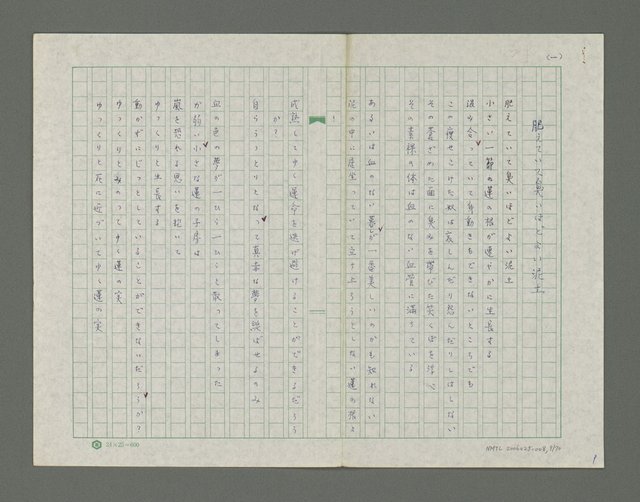 (一)
肥えていて臭いほどよい泥土
肥えていて臭いほどよい泥土
小さい一節の蓮の根が速やかに生長する
混み合っていて身動きもできないところでも
この痩せこけた奴は哀しんだり怨んだりしはしない
その蒼ざめた面に臭みを帯びた笑くぼを浮べ
その素裸の体は血のない血管に満ちている
あるいは血のない蒼が一番美しいのかも知れない
泥の中に居坐っていて立ち上ろうとしない蓮の根よ
!
成熟してゆく運命を逃げ避けることができるだろう
か?
自らうっとりとなって真赤な夢を綻ばせるのみ
血の色の夢が一ひら一ひらと散ってしまった
か弱い小さな蓮の子房は
嵐を恐れる思いを抱いて
ゆっくりと生長する
動かずにじっとしていることができないだろうか?
ゆっくりとみのってゆく蓮の実
ゆっくりと死に近づいてゆく蓮の実
24×25=600
NMTL 2006029-008, 9/70
1